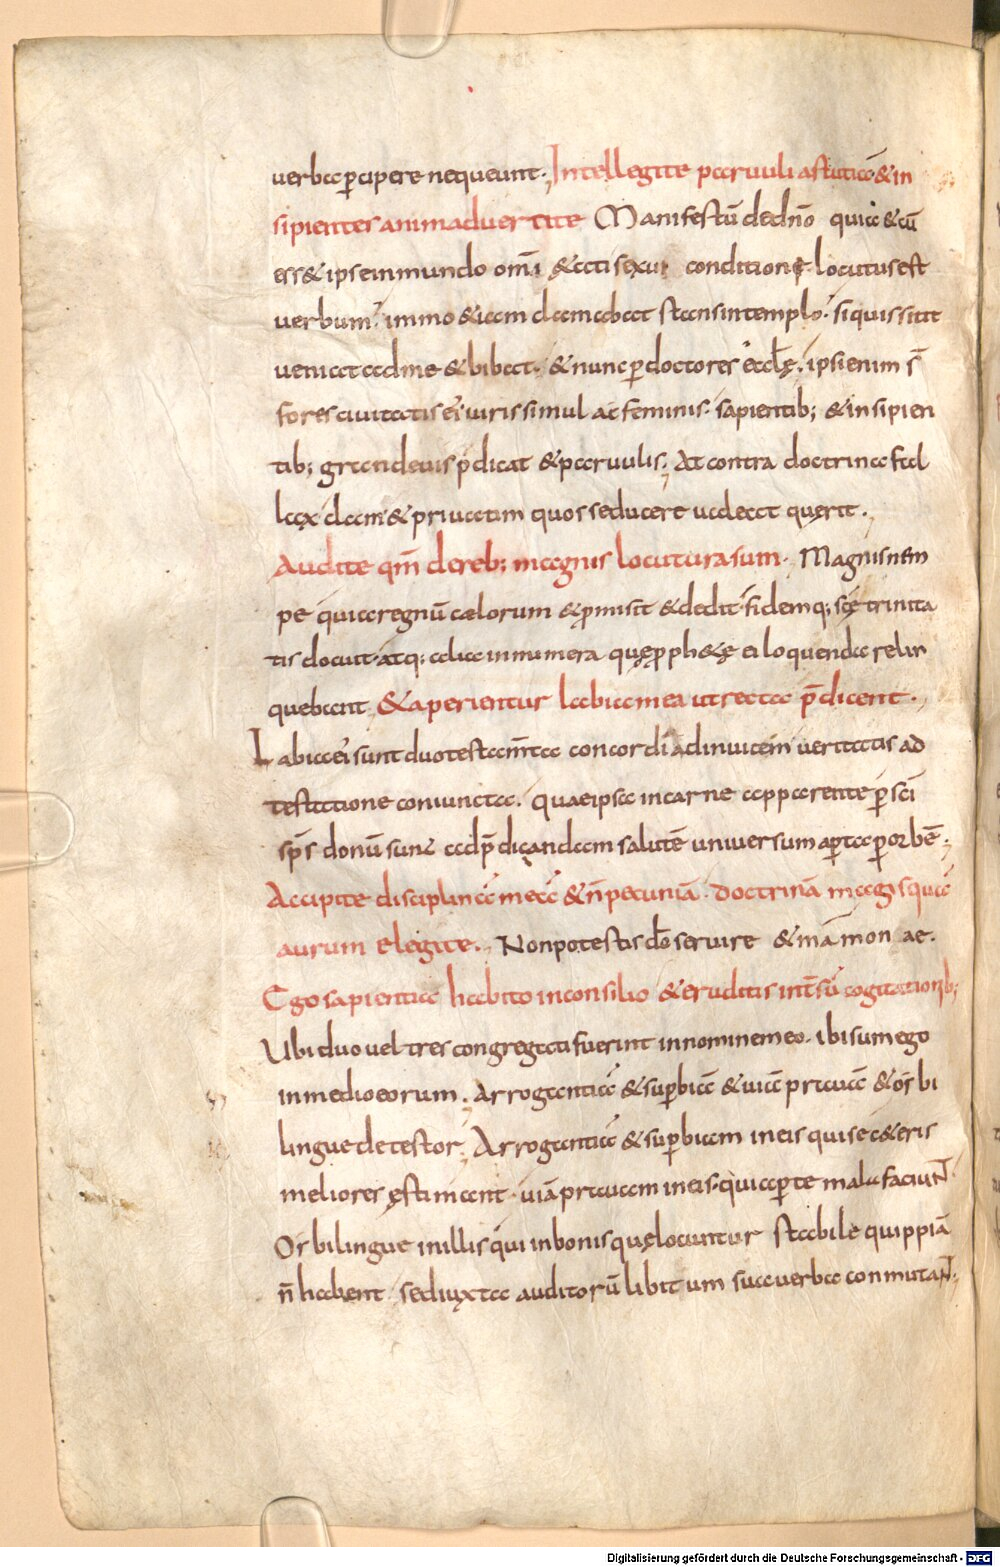 uerba p̄cipere nequeunt. Intellegite paruuli astutiā & in
sipientes animaduertite Manifestū dedn̄o quia & cū
ess& ipse in mundo om̄i &ati sexui conditione locutus est
uerbum. immo & iam clamabat stans in templo. si quis sitit
ueniat ad me & bibat. & nunc p̄ doctores eccl̄ę. ipsi enim s̄
fores ciuitatis ei uiris simul ac feminis. sapientib; & insipien
tib; grandeuis p̄dicat & paruulis. At contra doctrina fal
lax clam & priuatim quos seducere ualeat querit.
Audite qm̄ de reb; magnis locutura sum. Magnis nem
pe quia regnū caelorum & p̄misit & dedit fidemq; scę trinita
tis docuit. atq; alia innumera quę p̄ph&ę ei loquenda relin
quebant. & aperientur labia mea ut recta p̄dicent.
Labia ei sunt duo testam̄ta concordi ad inuicem ueritatis ad
testatione coniuncta. quae ipsa in carne apparente p̄ sci
sp̄s donū sunt ad p̄dicandam salutē uniuersum ap̄ta p̄ orbē.
Accipite disciplinā meā & n̄ pecuniā. doctrinā magis quā
aurum elegite. Non potestis d̄o seruire & mammonae.
Ego sapientia habito in consilio & eruditis int̄sū cogitationib;
Ubi duo uel tres congregati fuerint in nomine meo. ibi sum ego
in medio eorum. Arrogantiā & sup̄biā & uiā prauā & os bi
lingue detestor. Arrogantiā & sup̄biam in eis qui se c&eris
meliores ęstimant. uiā prauam in eis. qui ap̄te mala faciunt
Os bilingue in illis qui in bonis quę locuntur stabile quippiā
n̄ habent. sed iuxta auditorū libitum sua uerba conmutant.
Digitalisierung gefördert durch die Deutsche Forschungsgemeinschaft - DFG